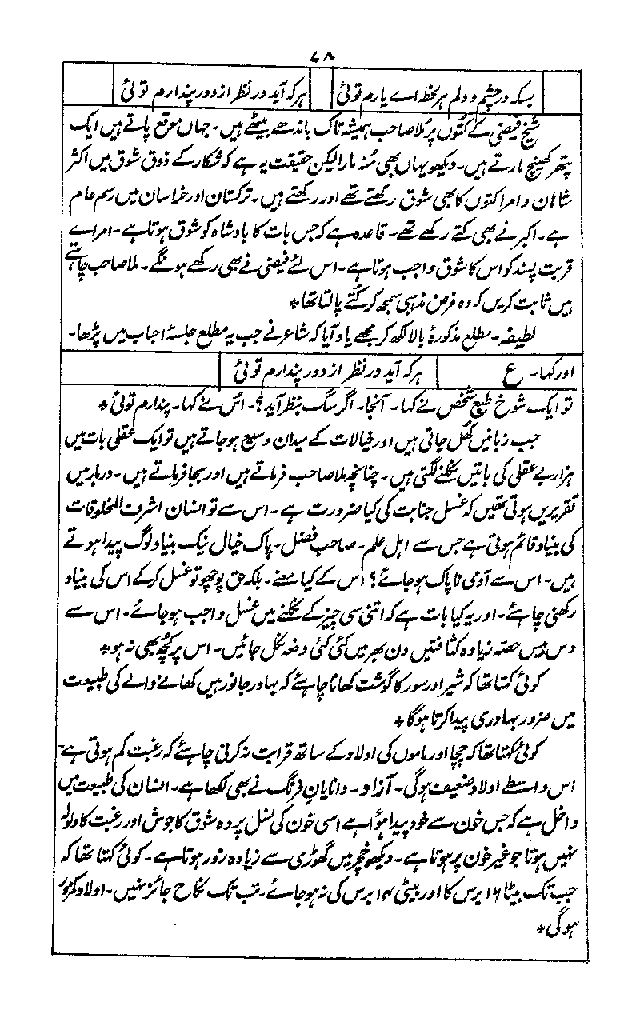 ۷۸
بسکہ در چشم و دلم ہر لحظہ اے یارم توئی ہر کہ آید در نظر از دور پندارم توئی
شیخ فیضی کے کتوں پر مُلا صاحب ہمیشہ تاک باندھے بیٹھے ہیں۔ جہاں موقع پاتے ہیں ایک
پتھر کھینچ مارتے ہیں۔ دیکھو یہاں بھی مُنہ مارا لیکن حقیقت یہ ہے کہ شکار کے ذوق شوق میں اکثر
شاہان و امرا کتوں کا بھی شوق رکھتے تھے اور رکھتے ہیں۔ ترکستان اور خراسان میں رسم عام
ہے۔ اکبر نے بھی کتے رکھے تھے۔ قاعدہ ہے کہ جس بات کا بادشاہ کو شوق ہوتا ہے۔ امراے
قربت پسند کو اس کا شوق واجب ہوتا ہے۔ اس لئے فیضی نے بھی رکھے ہونگے۔ ملا صاحب چاہتے
ہیں ثابت کریں کہ وہ فرض مذہبی سمجھ کر کتے پالتا تھا *
لطیفہ۔ مطلع مذکورۂ بالا لکھ کر مجھے یاد آیا کہ شاعر نے جب یہ مطلع جلسۂ احباب میں پڑھا۔
اور کہا۔ ع ہر کہ آید در نظر از دور پندارم توئی
تو ایک شوخ طبع شخص نے کہا۔ آنجا۔ اگر سگ بنظر آید؟ اُس نے کہا۔ پندارم توئی *
جب زبانیں کُھل جاتی ہیں اور خیالات کے میدان وسیع ہو جاتے ہیں تو ایک عقلی بات میں
ہزار بے عقلی کی باتیں نکلنے لگتی ہیں۔ چنانچہ ملا صاحب فرماتے ہیں اور بجا فرماتے ہیں۔ دربار میں
تقریریں ہوتی تھیں کہ غسل جنابت کی کیا ضرورت ہے۔ اس سے تو انسان اشرف المخلوقات
کی بنیاد قائم ہوتی ہے جس سے اہل علم۔ صاحب فضل۔ پاک خیال نیک بنیاد لوگ پیدا ہوتے
ہیں۔ اس سے آدمی ناپاک ہو جائے؟ اس کے کیا معنے۔ بلکہ حق پوچھو تو غسل کر کے اس کی بنیاد
رکھنی چاہئے۔ اور یہ کیا بات ہے کہ اتنی سی چیز کے نکلنے میں غسل واجب ہو جائے۔ اس سے
دس بیس حصّہ زیادہ کثافتیں دن بھر میں کئی کئی دفعہ نکل جائیں۔ اس پر کچھ بھی نہ ہو *
کوئی کہتا تھا کہ شیر اور سور کا گوشت کھانا چاہئے کہ بہادر جانور ہیں کھانے والے کی طبیعت
میں ضرور بہادری پیدا کرتا ہوگا *
کوئی کہتا تھا کہ چچا اور ماموں کی اولاد کے ساتھ قرابت نہ کرنی چاہئے کہ رغبت کم ہوتی ہے۔
اس واسطے اولاد ضعیف ہوگی۔ آزاد۔ دانایان فرنگ نے بھی لکھا ہے۔ انسان کی طبیعت میں
داخل ہے کہ جس خون سے خود پیدا ہوا ہے اسی خون کی نسل پر وہ شوق کا جوش اور رغبت کا ولولہ
نہیں ہوتا جو غیر خون پر ہوتا ہے۔ دیکھو خچر میں گھوڑی سے زیادہ زور ہوتا ہے۔ کوئی کہتا تھا کہ
جب تک بیٹا ۱۶ برس کا اور بیٹی ۱۴ برس کی نہ ہو جائے۔ تب تک نکاح جائز نہیں۔ اولاد کمزور
ہوگی *